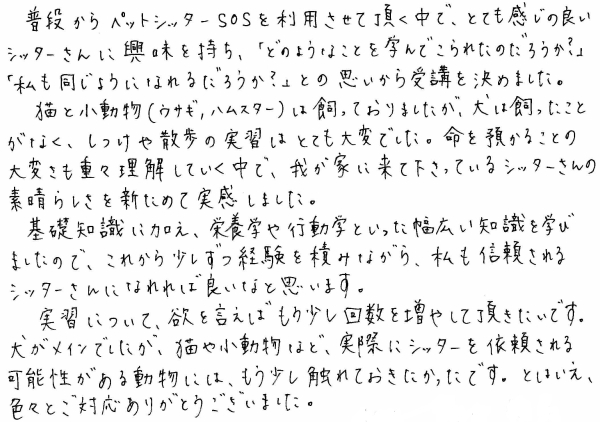 普段からペットシッターSOSを利用させて頂く中で、とても感じの良い
シッターさんに興味を持ち、「どのようなことを学んでこられたのだろうか?」
「私も同じようになれるだろうか?」との思いから受講を決めました。
猫と小動物(ウサギ,ハムスター)は飼っておりましたが、犬は飼ったこと
がなく、しつけや散歩の実習はとても大変でした。命を預かることの
大変さも重々理解していく中で、我が家に来て下さっているシッターさんの
素晴らしさを新ためて実感しました。
基礎知識に加え、栄養学や行動学といった幅広い知識を学び
ましたので、これから少しずつ経験を積みながら、私も信頼される
シッターさんになれれば良いなと思います。
実習について、欲を言えばもう少し回数を増やして頂きたいです。
犬がメインでしたが、猫や小動物など、実際にシッターを依頼される
可能性がある動物には、もう少し触れておきたかったです。とはいえ、
色々とご対応ありがとうございました。